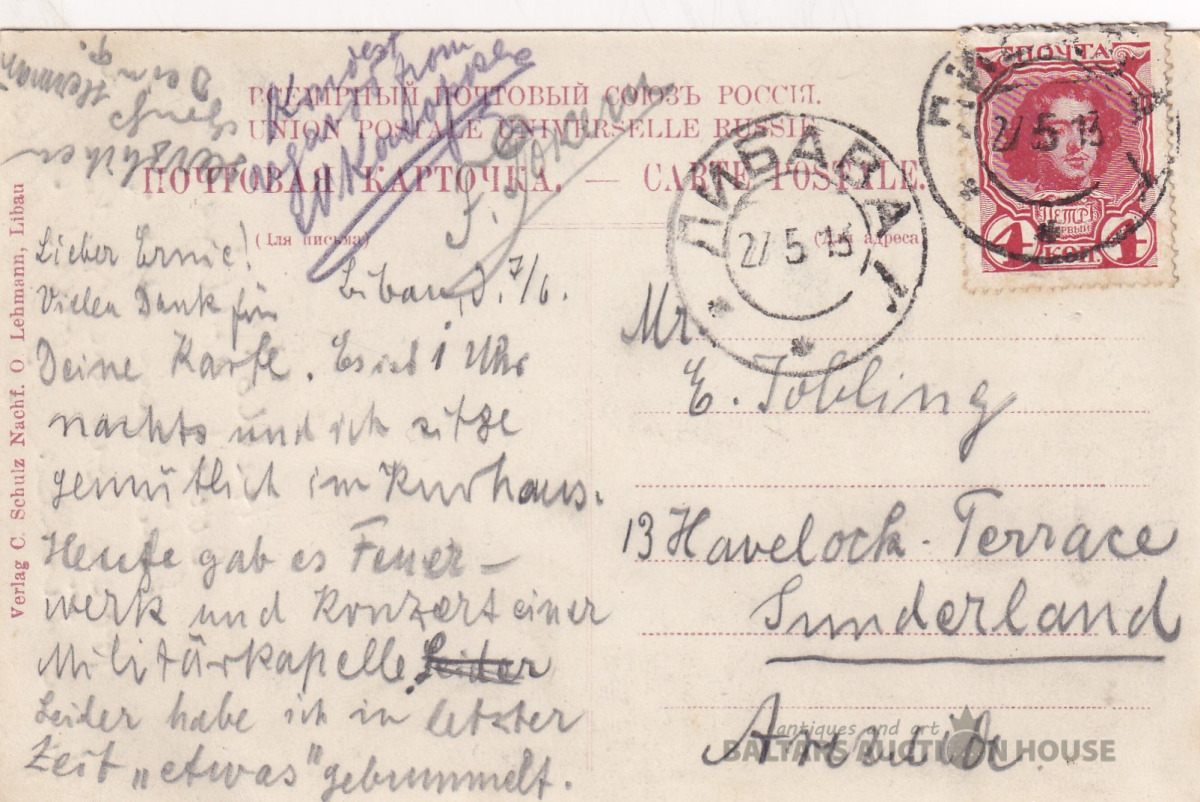 ВСЕМІРНЫЙ ПОЧТОВЫЙ СОЮЗЪ РОССІЯ.
UNION POSTALE UNIVERSELLE RUSSIE
ПОЧТОВАЯ КАРТОЧКА. — CARTE POSTALE.
(Для письма)
(Для адреса)
Kondest
organd from
Lieber Ernie!
Libau, d. 7/6.
Vielen Dank für
Deine Karte. Es ist 1 Uhr
nachts und ich sitze
gemütlich im Kurhaus.
Heute gab es Feuer-
werk und Konzert einer
Militärkapelle. Leider
Leider habe ich in letzter
Zeit „etwas" gebummelt.
Herzlichen
Dein
Hermann
Verlag C. Schulz Nachf. O Lehmann, Libau
ПОЧТА
ПЕТРЪ
ПЕРВЫЙ
4 КОП. 4
ЛИБАВА
27 5 13
27 5 13
Mr.
E. Jobling
13 Havelock-Terrace
Sunderland
antiques and art
BALTARS AUCTION HOUSE